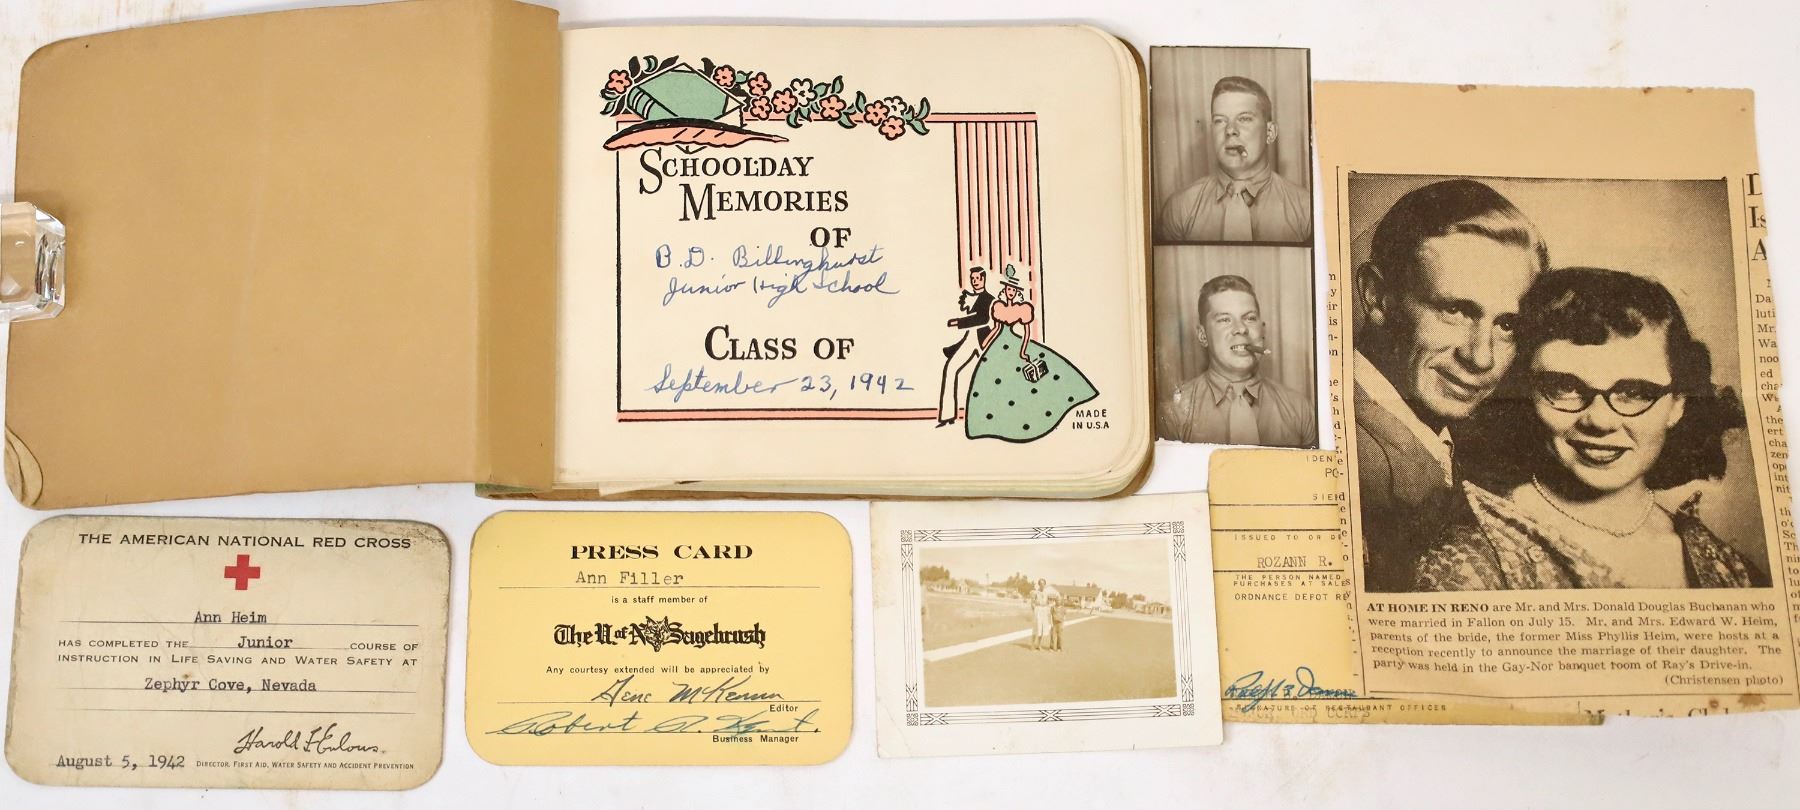 SCHOOLDAY
MEMORIES
OF
B. D. Billinghurst
Junior High School
CLASS OF
September 23, 1942
MADE
IN U.S.A
THE AMERICAN NATIONAL RED CROSS
Ann Heim
HAS COMPLETED THE Junior COURSE OF
INSTRUCTION IN LIFE SAVING AND WATER SAFETY AT
Zephyr Cove, Nevada
August 5, 1942 DIRECTOR, FIRST AID, WATER SAFETY AND ACCIDENT PREVENTION
PRESS CARD
Ann Filler
is a staff member of
The U of N Sagebrush
Any courtesy extended will be appreciated by
Gene McKenna
Editor
Robert A.
Business Manager
IDEN
PO-
ISSUED TO OR
ROZANN R.
THE PERSON NAMED
PURCHASES AT SALE
ORDNANCE DEPOT RE
SIGNATURE OF RESTAURANT OFFICER
AT HOME IN RENO are Mr. and Mrs. Donald Douglas Buchanan who
were married in Fallon on July 15. Mr. and Mrs. Edward W. Heim,
parents of the bride, the former Miss Phyllis Heim, were hosts at a
reception recently to announce the marriage of their daughter. The
party was held in the Gay-Nor banquet room of Ray's Drive-in.
(Christensen photo)